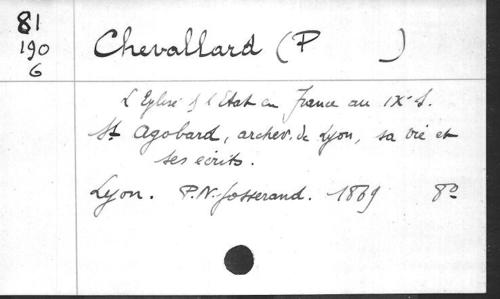 81
190
6
Chevallard (P )
L'Eglise & l'Etat en France au IXe s.
St Agobard, archev. de Lyon, sa vie et
ses écrits.
Lyon. P. N. Josserand. 1869 8o